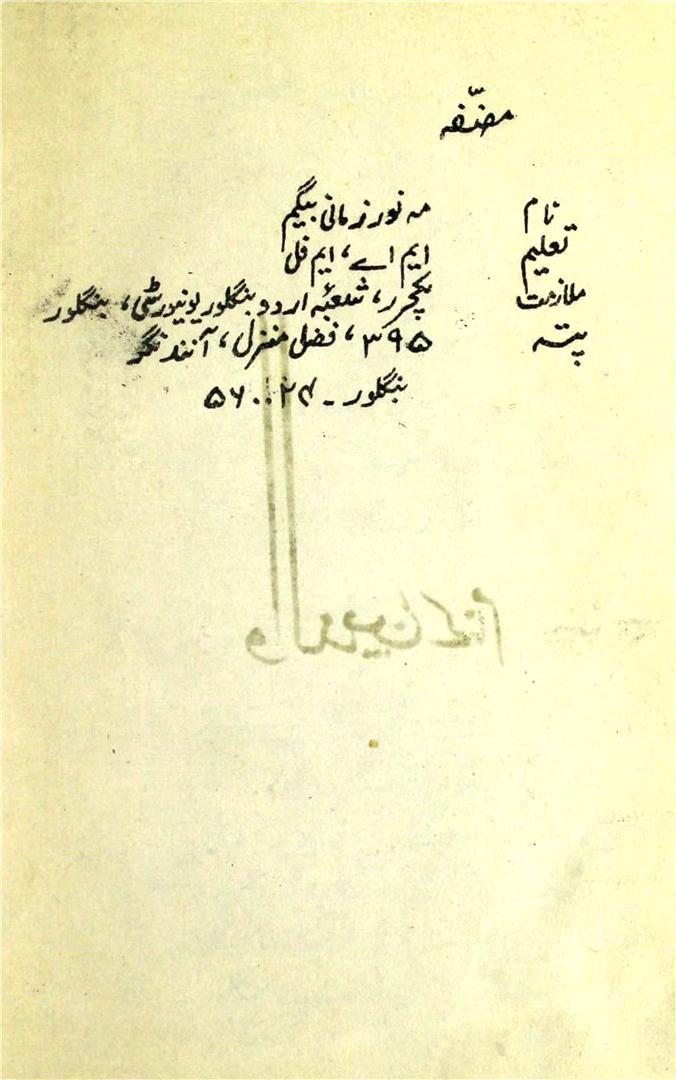 مصنّفہ
نام مہ نور زمانی بیگم
تعلیم ایم اے، ایم فل
ملازمت لکچرر، شعبۂ اردو بنگلور یونیورسٹی، بنگلور
پتہ ۳۹۵، فضل منزل، آنند نگر
بنگلور ۔ ۵۶۰۰۲۴
والدین کے نام